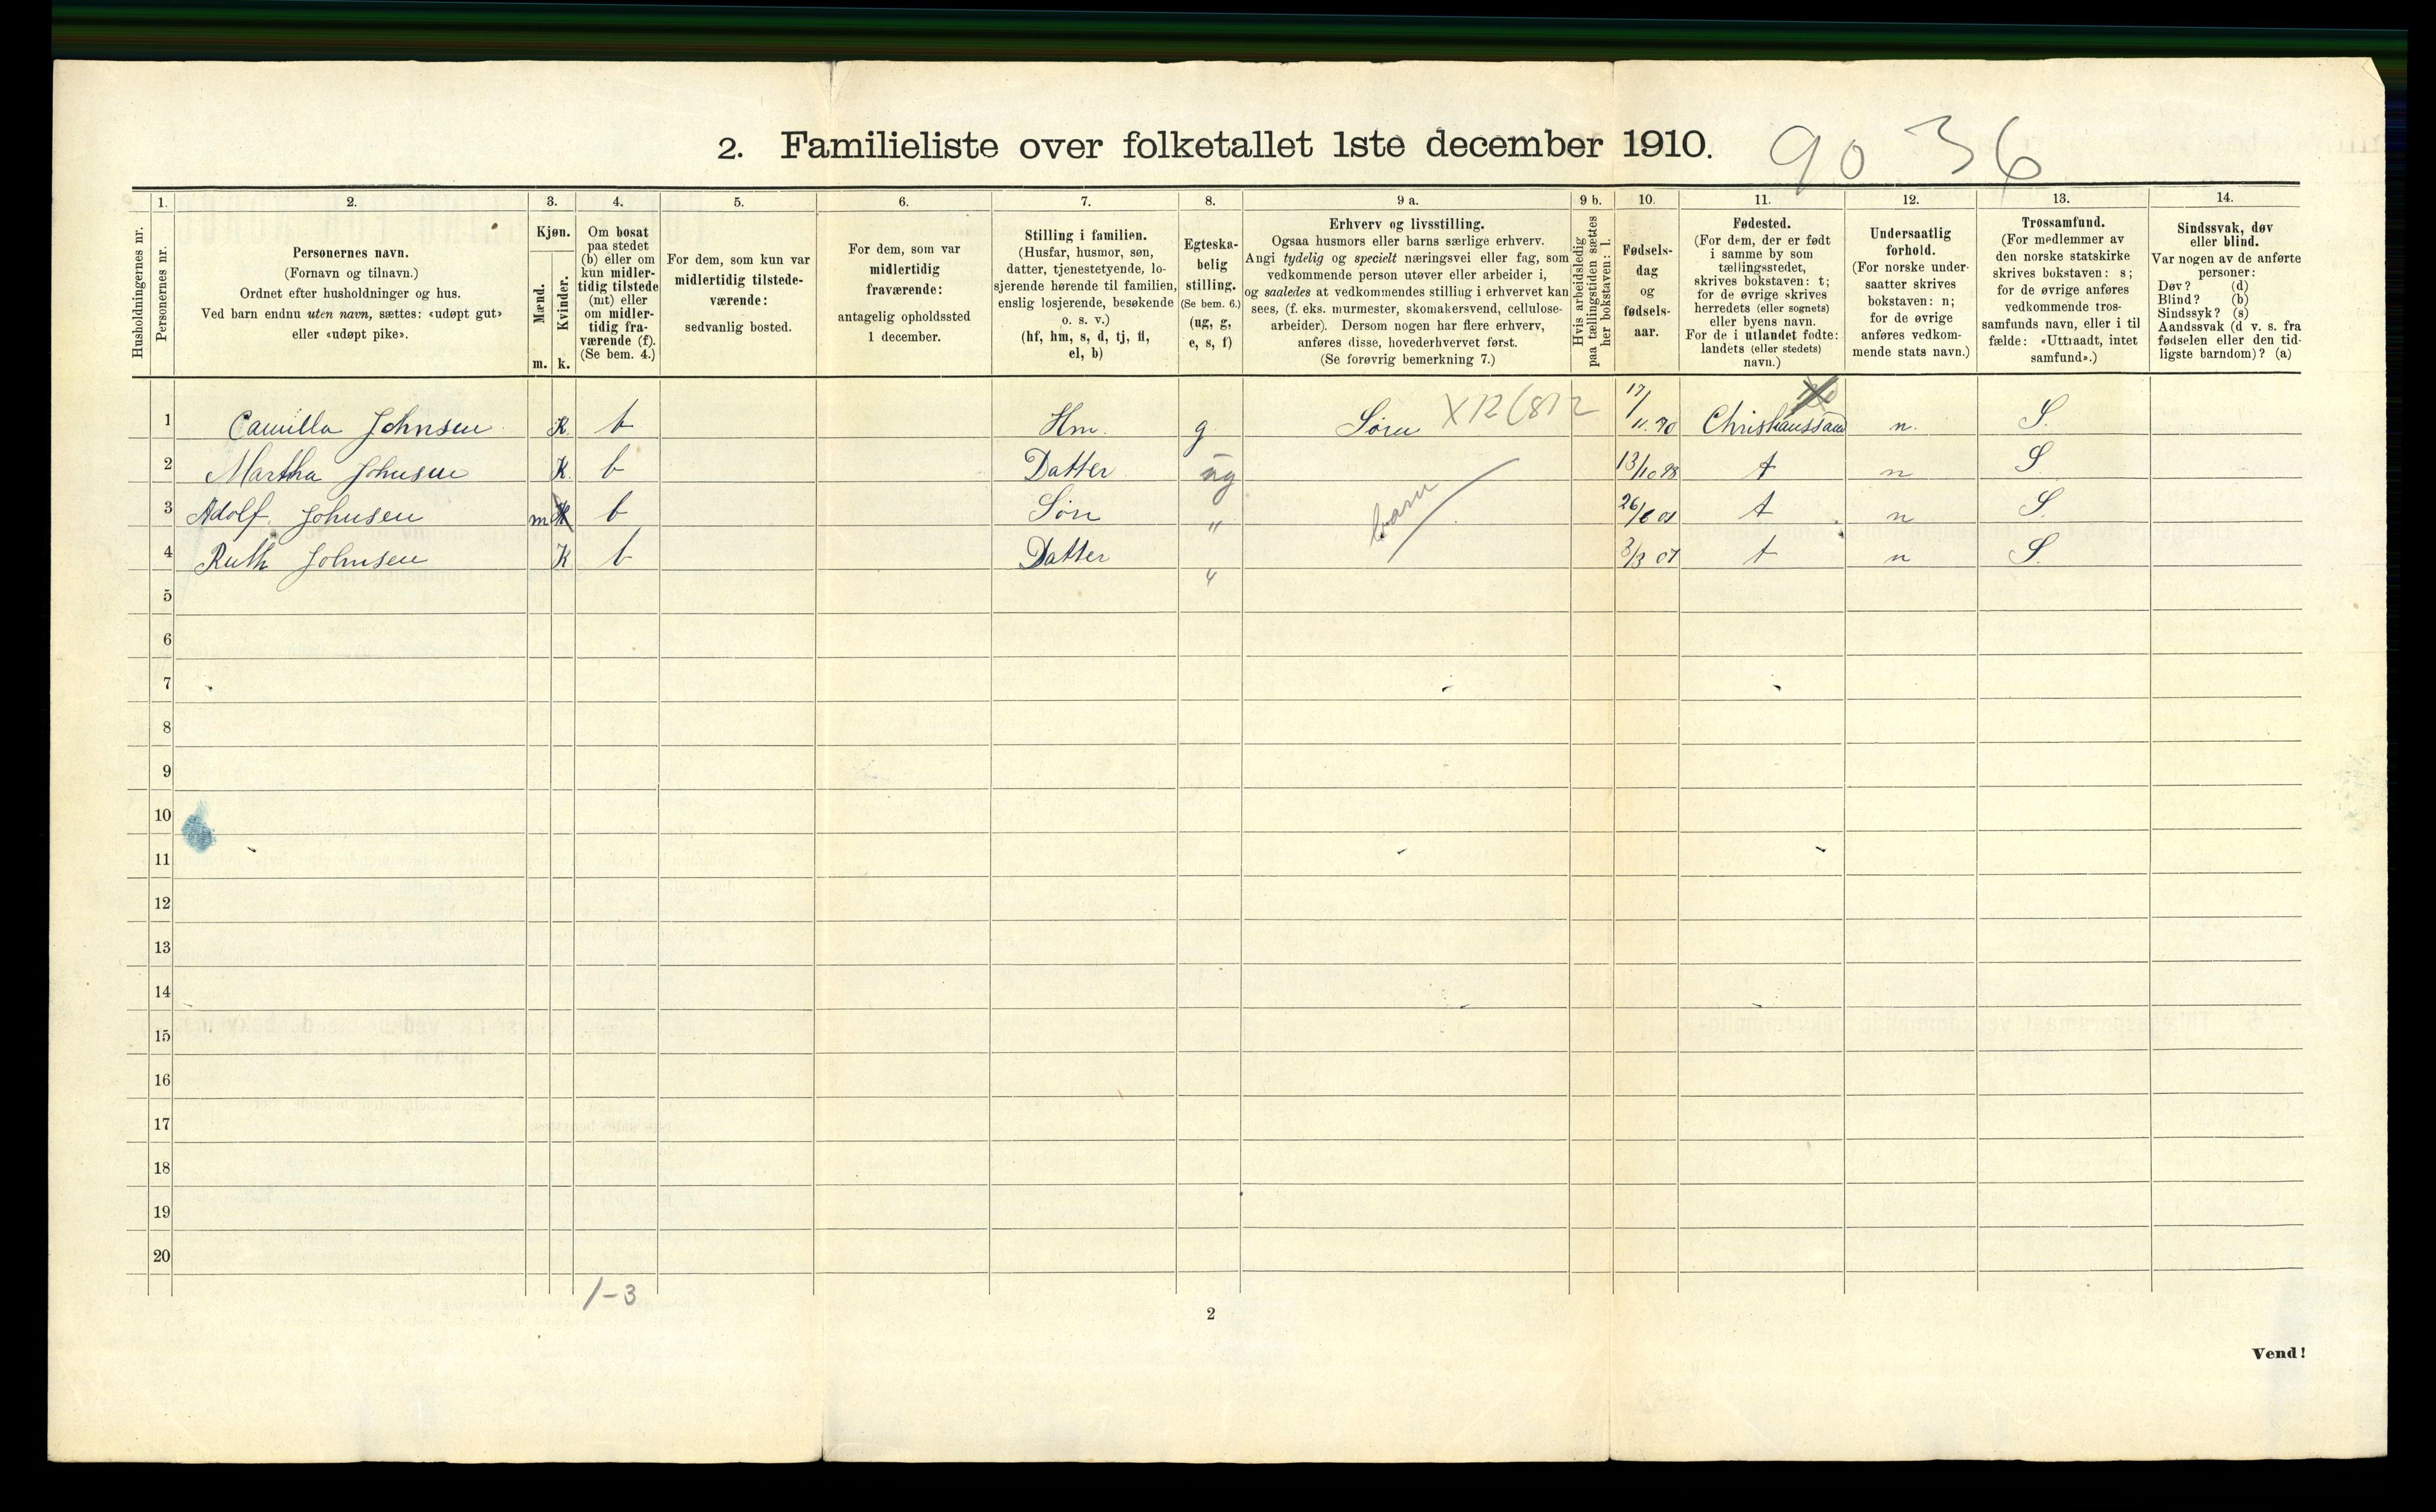 2. Familieliste over folketallet 1ste december 1910.
90 36
1. 2. 3. 4. 5. 6. 7. 8. 9 a. 9 b. 10. 11. 12. 13. 14.
Husholdningernes nr.
Personernes nr.
Personernes navn.
(Fornavn og tilnavn.)
Ordnet efter husholdninger og hus.
Ved barn endnu uten navn, sættes: «udøpt gut»
eller «udøpt pike».
Kjøn.
Mænd.
Kvinder.
m. k.
Om bosat
paa stedet
(b) eller om
kun midler-
tidig tilstede
(mt) eller
om midler-
tidig fra-
værende (f).
(Se bem. 4.)
For dem, som kun var
midlertidig tilstede-
værende:
sedvanlig bosted.
For dem, som var
midlertidig
fraværende:
antagelig opholdssted
1 december.
Stilling i familien.
(Husfar, husmor, søn,
datter, tjenestetyende, lo-
sjerende hørende til familien,
enslig losjerende, besøkende
o. s. v.)
(hf, hm, s, d, tj, fl,
el, b)
Egteska-
belig
stilling.
(Se bem. 6.)
(ug, g,
e, s, f)
Erhverv og livsstilling.
Ogsaa husmors eller barns særlige erhverv.
Angi tydelig og specielt næringsvei eller fag, som
vedkommende person utøver eller arbeider i,
og saaledes at vedkommendes stilling i erhvervet kan
sees, (f. eks. murmester, skomakersvend, cellulose-
arbeider). Dersom nogen har flere erhverv,
anføres disse, hovederhvervet først.
(Se forøvrig bemerkning 7.)
Hvis arbeidsledig
paa tællingstiden sættes
her bokstaven: l.
Fødsels-
dag
og
fødsels-
aar.
Fødested.
(For dem, der er født
i samme by som
tællingsstedet,
skrives bokstaven: t;
for de øvrige skrives
herredets (eller sognets)
eller byens navn.
For de i utlandet fødte:
landets (eller stedets)
navn.)
Undersaatlig
forhold.
(For norske under-
saatter skrives
bokstaven: n;
for de øvrige
anføres vedkom-
mende stats navn.)
Trossamfund.
(For medlemmer av
den norske statskirke
skrives bokstaven: s;
for de øvrige anføres
vedkommende tros-
samfunds navn, eller i til
fælde: «Uttraadt, intet
samfund».)
Sindssvak, døv
eller blind.
Var nogen av de anførte
personer:
Døv? (d)
Blind? (b)
Sindssyk? (s)
Aandssvak (d v. s. fra
fødselen eller den tid-
ligste barndom)? (a)
1 Camilla Johnsen K. b Hm. g X12 17/11.70 Christianssand n. S.
2 Martha Johnsen K. b Datter ug 13/10 98 t n S
3 Adolf Johnsen m b Søn " barn 26/6 01 t n S.
4 Ruth Johnsen K b Datter " 3/3 07 t n S.
5
6
7
8
9
10
11
12
13
14
15
16
17
18
19
20
1-3
2
Vend!